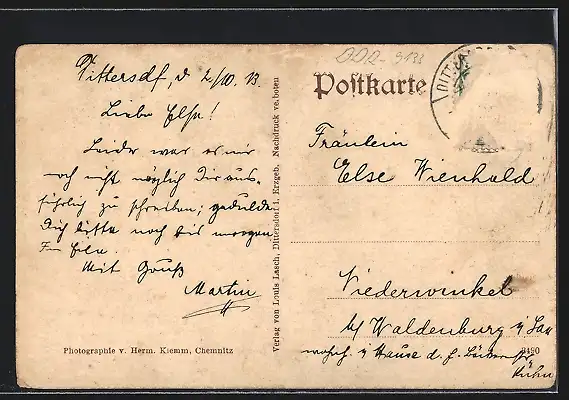 Dittersdf, d 2/10. 13.
Liebe Else!
Leider war es mir
noch nicht möglich Dir aus-
führlich zu schreiben; gedulde
Dich bitte noch bis morgen
In Eile.
Mit Gruß
Martin
Photographie v. Herm. Kiemm, Chemnitz
Verlag von Louis Lasch, Dittersdorf i. Erzgeb. Nachdruck verboten
DDR-9133
Postkarte
DITT
Fräulein
Else Wienhold
Niederwinkel
b/ Waldenburg i/ Sa
wohnh. i Hause d. H.
3490
Kühn